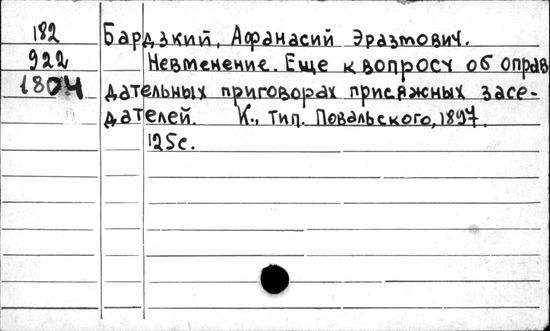 182 Бардзкий, Афанасий Эразмович.
922 Невменение. Еще к вопросу об оправ
1804 дательных приговорах присяжных засе-
дателей. К., тип. Повальского, 1897.
125с.